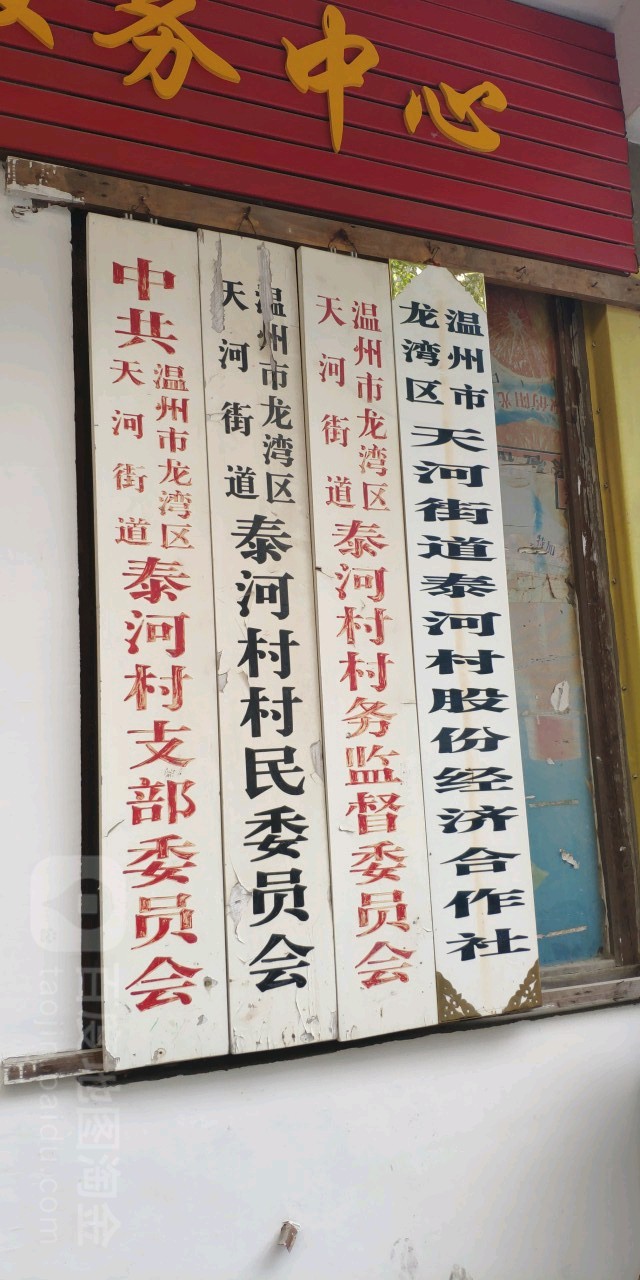 务中心
中共温州市龙湾区天河街道泰河村支部委员会
温州市龙湾区天河街道泰河村村民委员会
温州市龙湾区天河街道泰河村村务监督委员会
温州市龙湾区天河街道泰河村股份经济合作社
百度地图淘金
taojin.baidu.com